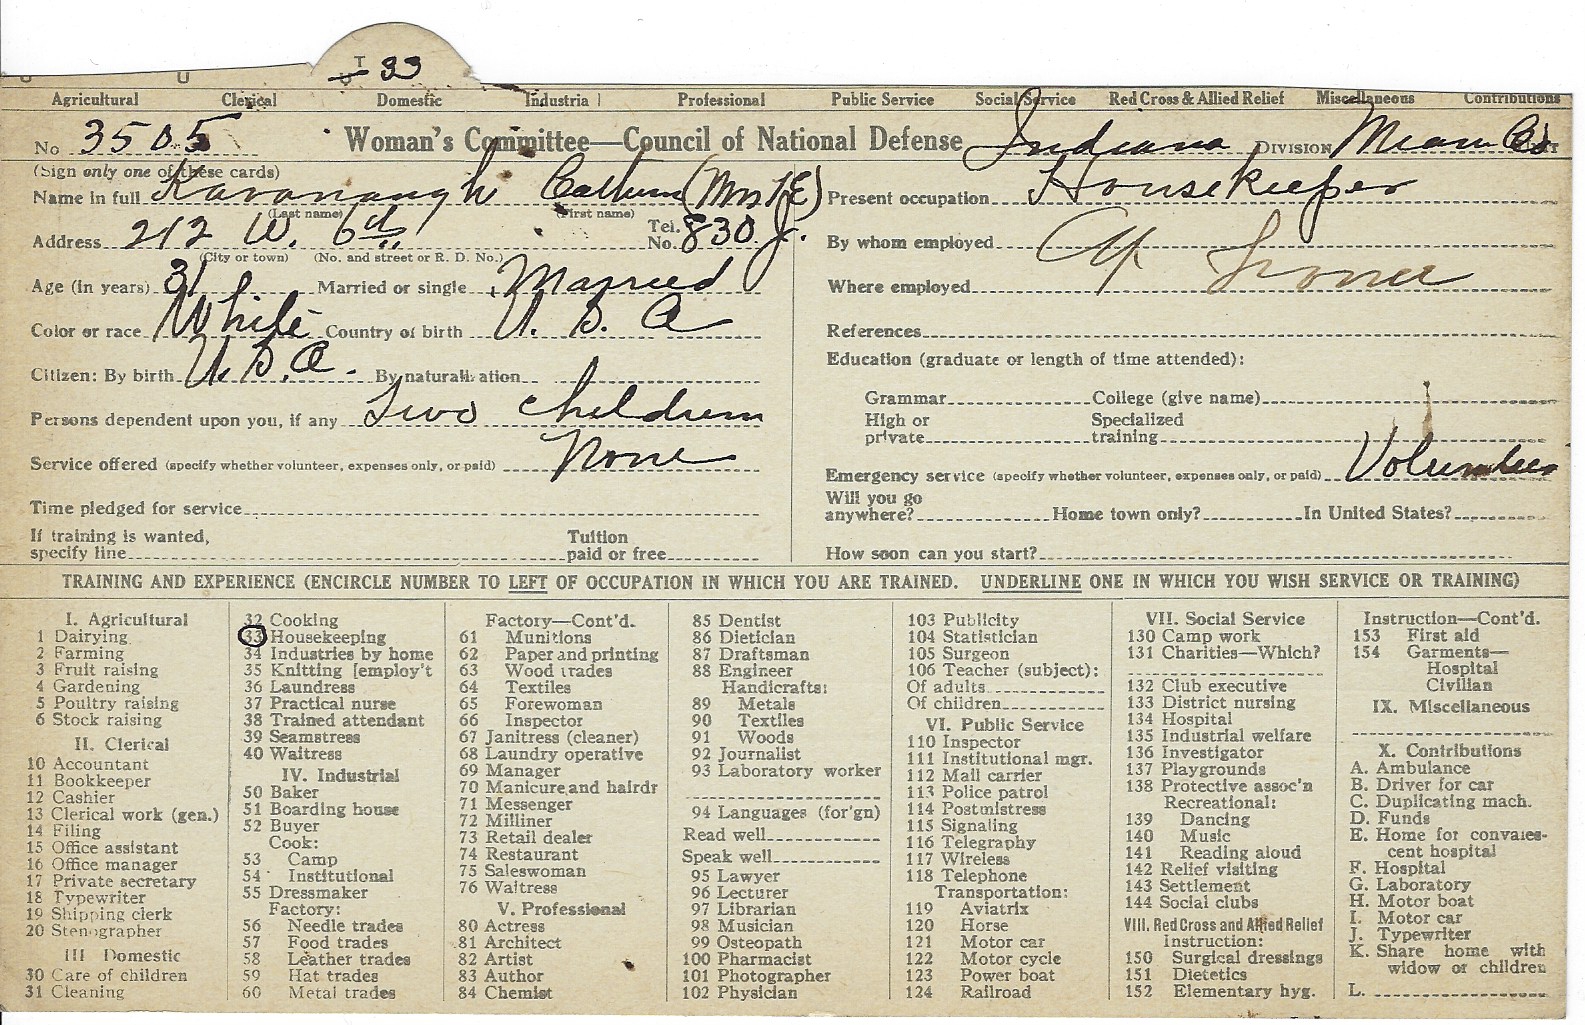 T 33
U
Agricultural Clerical Domestic Industrial Professional Public Service Social Service Red Cross & Allied Relief Miscellaneous Contributions
No 3505 Woman's Committee—Council of National Defense Indiana DIVISION Miami Co
(Sign only one of these cards)
Name in full Kavanaugh (Mrs E)
(Last name) (First name)
Address 212 W. 6th Tel. No. 830 J.
(City or town) (No. and street or R. D. No.)
Age (in years) 31 Married or single Married
Color or race White Country of birth U. S. A
Citizen: By birth U. S. A. By naturalization
Persons dependent upon you, if any Two children
Service offered (specify whether volunteer, expenses only, or paid) None
Time pledged for service
If training is wanted, specify line Tuition paid or free
Present occupation Housekeeper
By whom employed At
Where employed home
References
Education (graduate or length of time attended):
Grammar College (give name)
High or private Specialized training
Emergency service (specify whether volunteer, expenses only, or paid) Volunteer
Will you go anywhere? Home town only? In United States?
How soon can you start?
TRAINING AND EXPERIENCE (ENCIRCLE NUMBER TO LEFT OF OCCUPATION IN WHICH YOU ARE TRAINED. UNDERLINE ONE IN WHICH YOU WISH SERVICE OR TRAINING)
I. Agricultural
1 Dairying
2 Farming
3 Fruit raising
4 Gardening
5 Poultry raising
6 Stock raising
II. Clerical
10 Accountant
11 Bookkeeper
12 Cashier
13 Clerical work (gen.)
14 Filing
15 Office assistant
16 Office manager
17 Private secretary
18 Typewriter
19 Shipping clerk
20 Stenographer
III Domestic
30 Care of children
31 Cleaning
32 Cooking
33 Housekeeping
34 Industries by home
35 Knitting [employ't
36 Laundress
37 Practical nurse
38 Trained attendant
39 Seamstress
40 Waitress
IV. Industrial
50 Baker
51 Boarding house
52 Buyer
Cook:
53 Camp
54 Institutional
55 Dressmaker
Factory:
56 Needle trades
57 Food trades
58 Leather trades
59 Hat trades
60 Metal trades
Factory—Cont'd.
61 Munitions
62 Paper and printing
63 Wood trades
64 Textiles
65 Forewoman
66 Inspector
67 Janitress (cleaner)
68 Laundry operative
69 Manager
70 Manicure and hairdr
71 Messenger
72 Milliner
73 Retail dealer
74 Restaurant
75 Saleswoman
76 Waitress
V. Professional
80 Actress
81 Architect
82 Artist
83 Author
84 Chemist
85 Dentist
86 Dietician
87 Draftsman
88 Engineer
Handicrafts:
89 Metals
90 Textiles
91 Woods
92 Journalist
93 Laboratory worker
94 Languages (for'gn)
Read well
Speak well
95 Lawyer
96 Lecturer
97 Librarian
98 Musician
99 Osteopath
100 Pharmacist
101 Photographer
102 Physician
103 Publicity
104 Statistician
105 Surgeon
106 Teacher (subject):
Of adults
Of children
VI. Public Service
110 Inspector
111 Institutional mgr.
112 Mail carrier
113 Police patrol
114 Postmistress
115 Signaling
116 Telegraphy
117 Wireless
118 Telephone
Transportation:
119 Aviatrix
120 Horse
121 Motor car
122 Motor cycle
123 Power boat
124 Railroad
VII. Social Service
130 Camp work
131 Charities—Which?
132 Club executive
133 District nursing
134 Hospital
135 Industrial welfare
136 Investigator
137 Playgrounds
138 Protective assoc'n
Recreational:
139 Dancing
140 Music
141 Reading aloud
142 Relief visiting
143 Settlement
144 Social clubs
VIII. Red Cross and Allied Relief
Instruction:
150 Surgical dressings
151 Dietetics
152 Elementary hyg.
Instruction—Cont'd.
153 First aid
154 Garments—
Hospital
Civilian
IX. Miscellaneous
X. Contributions
A. Ambulance
B. Driver for car
C. Duplicating mach.
D. Funds
E. Home for convales-
cent hospital
F. Hospital
G. Laboratory
H. Motor boat
I. Motor car
J. Typewriter
K. Share home with
widow or children
L.